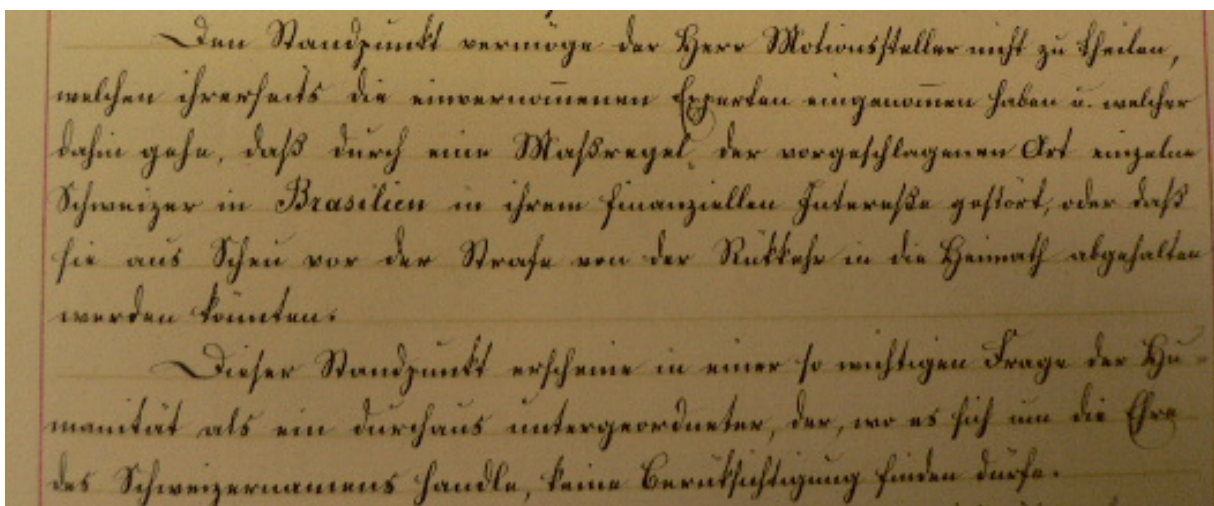 Den Standpunkt vermöge der Herr Motionssteller nicht zu theilen,
welchen ihrerseits die einvernom̄enen Experten eingenom̄en haben u. welcher
dahin gehe, daß durch eine Maßregel der vorgeschlagenen Art einzelne
Schweizer in Brasilien in ihrem finanziellen Intereße gestört, oder daß
sie aus Scheu vor der Strafe von der Rükkehr in die Heimath abgehalten
werden könnten.
Dieser Standpunkt erscheine in einer so wichtigen Frage der Hu-
manität als ein durchaus untergeordneter, der, wo es sich um die Ehre
des Schweizernamens handle, keine Berüksichtigung finden dürfe.